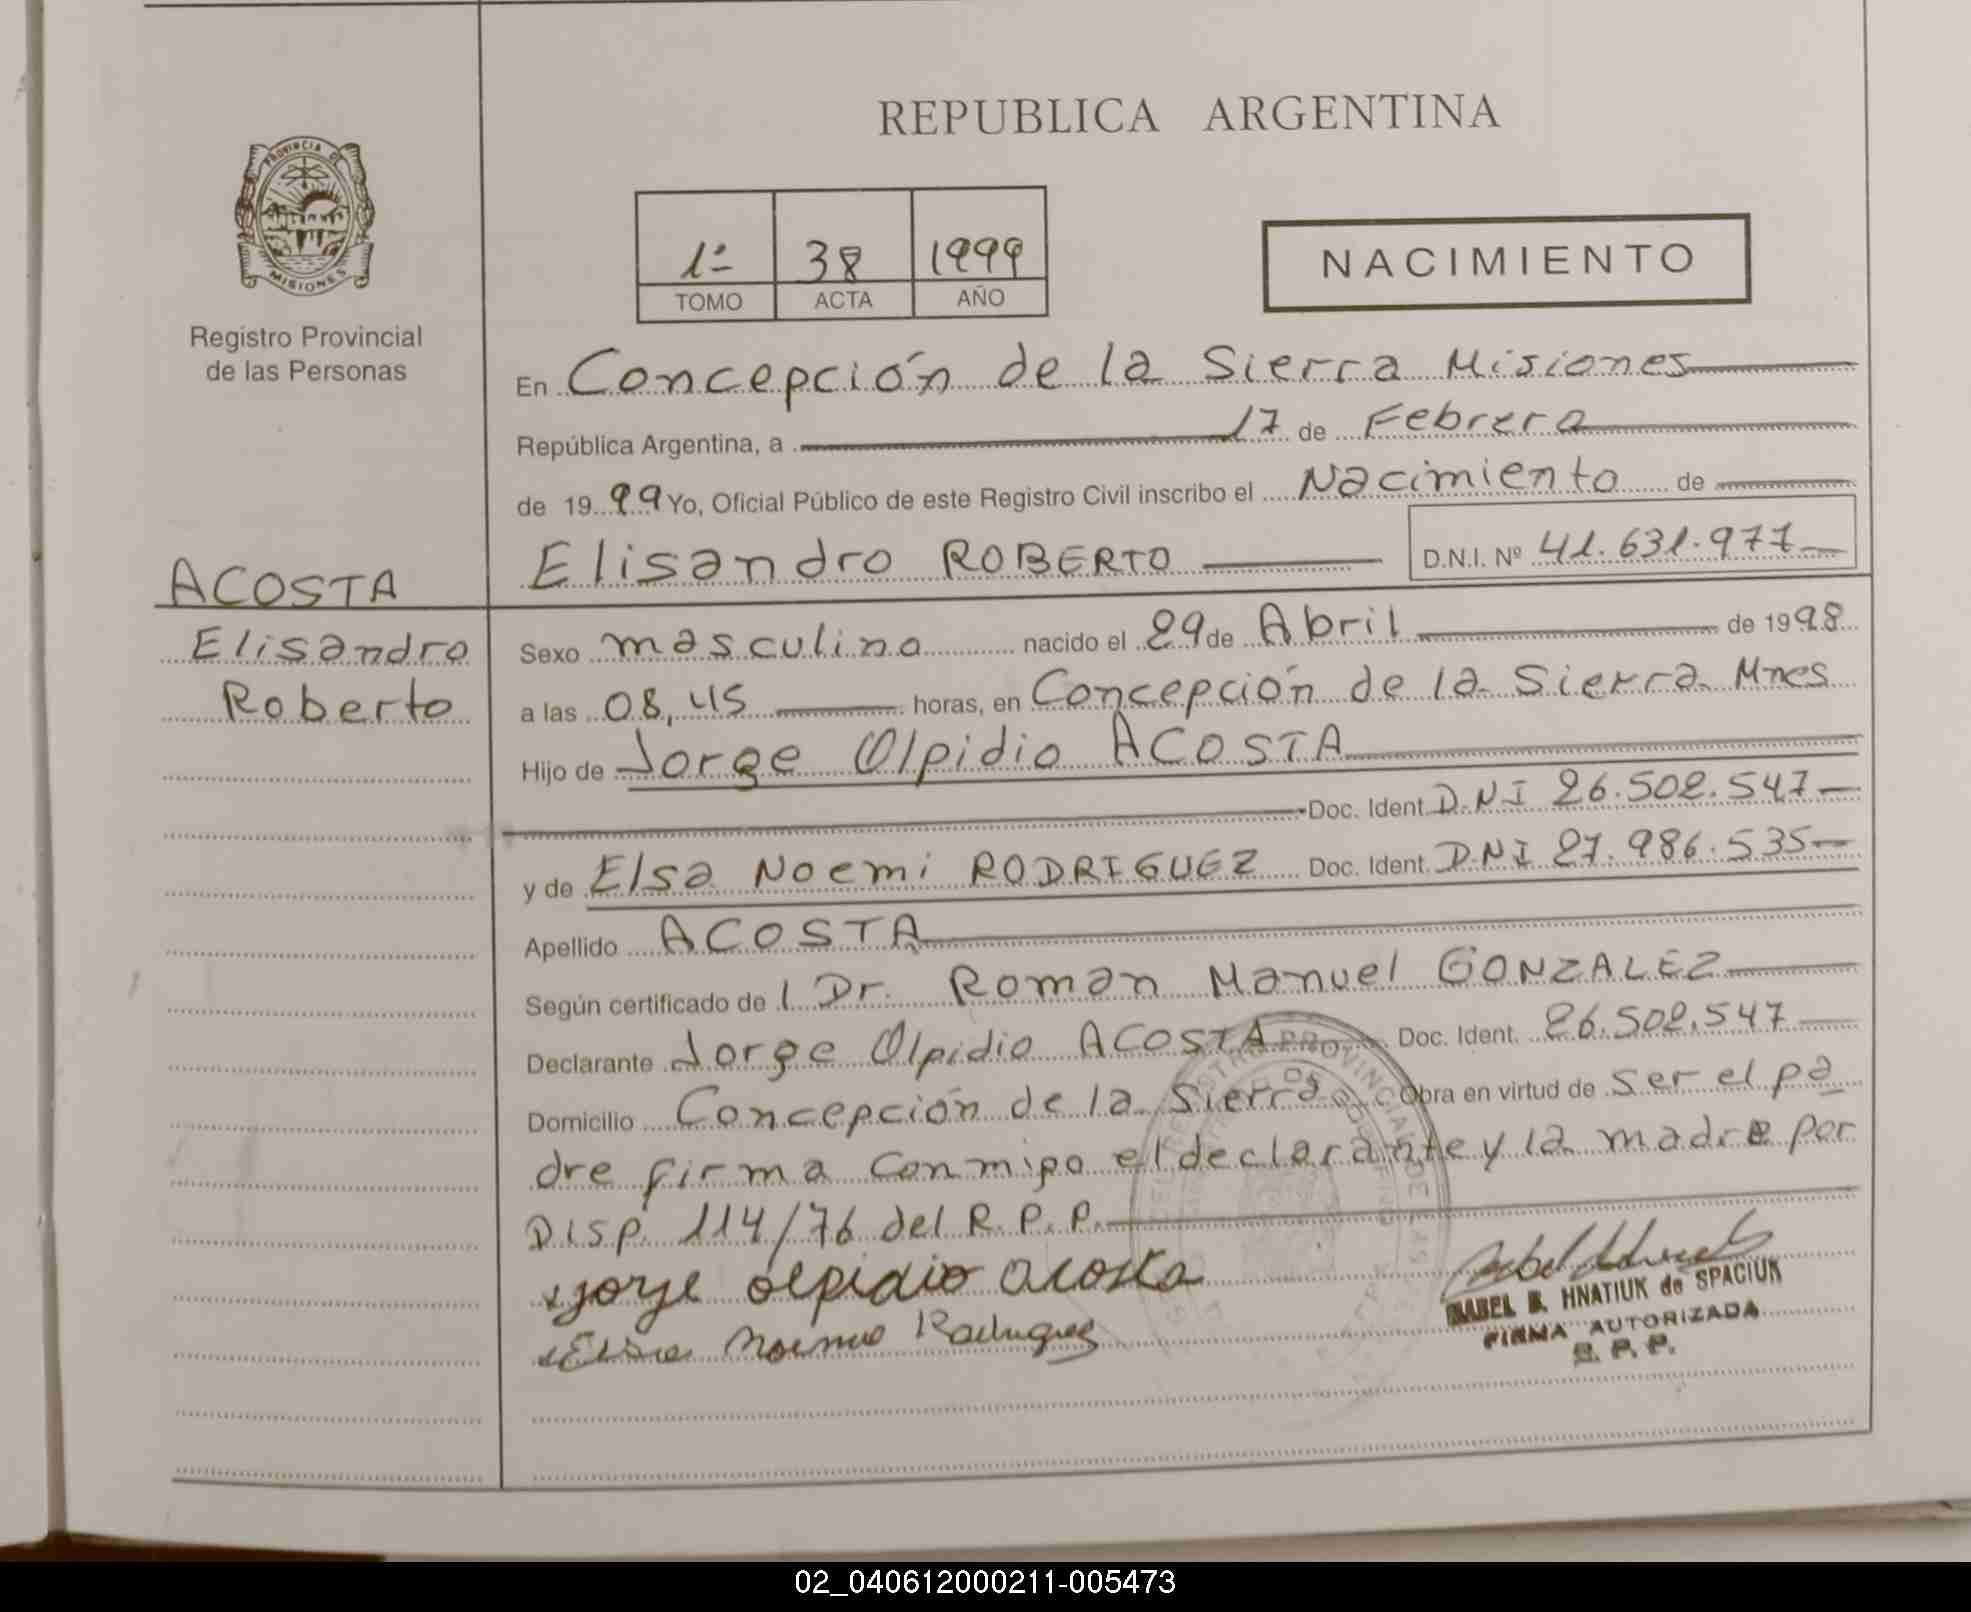 REPUBLICA ARGENTINA
PROVINCIA DE
MISIONES
Registro Provincial
de las Personas
1º 38 1999
TOMO ACTA AÑO
NACIMIENTO
En Concepción de la Sierra Misiones
República Argentina, a 17 de Febrero
de 1999 Yo, Oficial Público de este Registro Civil inscribo el Nacimiento de
Elisandro ROBERTO D.N.I. Nº 41.631.977
ACOSTA
Elisandro
Roberto
Sexo masculino nacido el 29 de Abril de 1998
a las 08,45 horas, en Concepción de la Sierra Mnes
Hijo de Jorge Olpidio ACOSTA
Doc. Ident. D.N.I 26.502.547
y de Elsa Noemi RODRIGUEZ Doc. Ident. D.N.I 27.986.535
Apellido ACOSTA
Según certificado de l Dr. Roman Manuel GONZALEZ
Declarante Jorge Olpidio ACOSTA Doc. Ident. 26.502.547
Domicilio Concepción de la Sierra Obra en virtud de ser el pa
dre firma conmigo el declarante y la madre por
DISP. 114/76 del R.P.P.
jorje olpidio acosta
Elsa Noemi Rodriguez
ISABEL B. HNATIUK de SPACIUK
FIRMA AUTORIZADA
R. P. P.
02_040612000211-005473